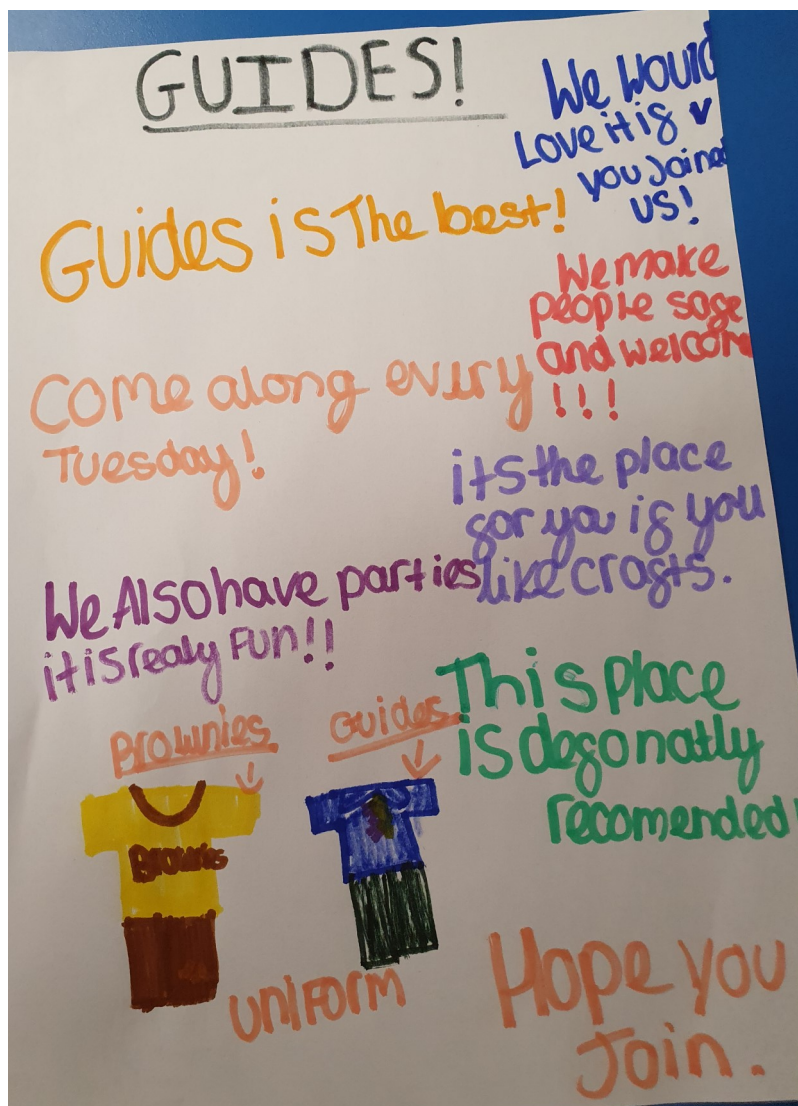 GUIDES!
We would
Love it if
you Joined
US!
Guides is The best!
We make
people safe
and welcome
!!!
Come along every
Tuesday!
its the place
for you if you
like crafts.
We Also have parties
it is realy Fun!!
This place
is defonatly
recomended!
Brownies
Guides
Brownis
UNIFORM
Hope you
Join.